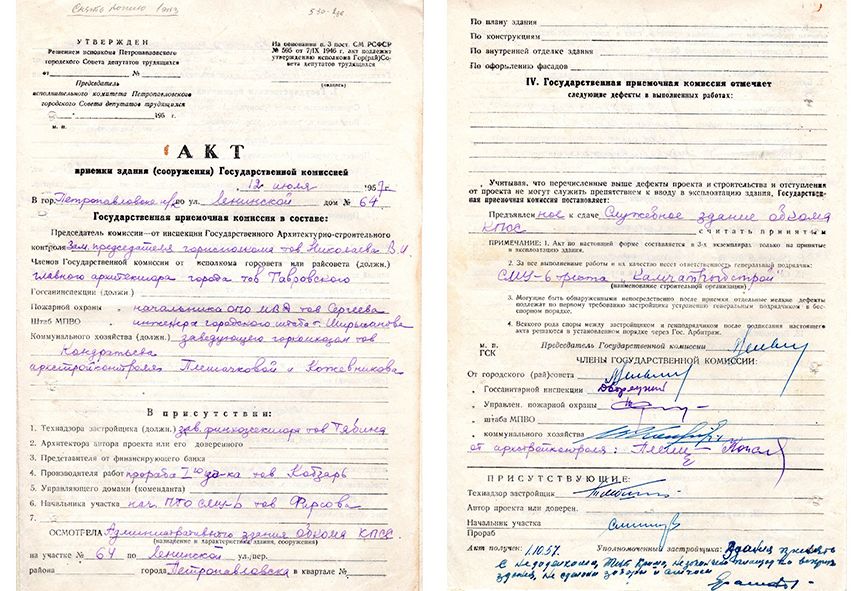 УТВЕРЖДЕН
Решением исполкома Петропавловского
городского Совета депутатов трудящихся
от № 
Председатель
исполнительного комитета Петропавловского
городского Совета депутатов трудящихся
195 г.
м. п.
На основании п. 3 пост. СМ РСФСР
№ 565 от 7/IX 1946 г. акт подлежит
утверждению исполкома Гор(рай)Со-
вета депутатов трудящихся
АКТ
приемки здания (сооружения) Государственной комиссией
12 июля 1957 г.
В гор. Петропавловске н/к по ул. Ленинской дом № 64
Государственная приемочная комиссия в составе:
Председатель комиссии—от инспекции Государственного Архитектурно-строительного
контроля зам. председателя горисполкома тов Николаева В.И
Членов Государственной комиссии от исполкома горсовета или райсовета (должн.)
главного архитектора города тов Гавровского
Госсанинспекции (должн.)
Пожарной охраны начальника ОПО МВД тов Сергеева
Штаб МПВО инженера городского штаба т.
Коммунального хозяйства (должн.) заведующего горкомхозом тов
Кондратьева
архстройконтроля Плешачковой и Кожевникова
В присутствии:
1. Технадзора застройщика (должн.) зав. финхозсектора тов
2. Архитектора автора проекта или его доверенного
3. Представителя от финансирующего банка
4. Производителя работ прораба тов. Кобзарь
5. Управляющего домами (коменданта)
6. Начальника участка нач. ПТО СМУ-6 тов Фирсова
7.
ОСМОТРЕЛА Административного здания обкома КПСС
(назначение и характеристика здания, сооружения)
на участке № 64 по Ленинской ул./пер.
района города Петропавловска в квартале №
По плану здания
По конструкциям
По внутренней отделке здания
По оформлению фасадов
IV. Государственная приемочная комиссия отмечает
следующие дефекты в выполненных работах:
Учитывая, что перечисленные выше дефекты проекта и строительства и отступления
от проекта не могут служить препятствием к вводу в эксплоатацию здания, Государствен-
ная приемочная комиссия постановляет:
Предъявленное к сдаче Служебное здание обкома
КПСС считать принятым
ПРИМЕЧАНИЕ: 1. Акт по настоящей форме составляется в 3-х экземплярах только на принятые
в эксплоатацию здания.
2. За все выполненные работы и их качество несет ответственность генеральный подрядчик:
СМУ-6 треста "Камчатрыбстрой"
(наименование строительной организации)
3. Могущие быть обнаруженными непосредственно после приемки отдельные мелкие дефекты
подлежат по первому требованию застройщика устранению генеральным подрядчиком в бес-
спорном порядке.
4. Всякого рода споры между застройщиком и генподрядчиком после подписания настоящего
акта решаются в установленном порядке через Гос. Арбитраж.
м. п.
ГСК
Председатель Государственной комиссии
ЧЛЕНЫ ГОСУДАРСТВЕННОЙ КОМИССИИ:
От городского (рай)совета
„ Госсанитарной инспекции Дворецкий
„ Управлен. пожарной охраны
„ штаба МПВО
„ коммунального хозяйства
от архстройконтроля:
ПРИСУТСТВУЮЩИЕ:
Технадзор застройщик
Автор проекта или доверен.
Начальник участка
Прораб
Акт получен: 1.10.57. Уполномоченный застройщика: Здания принято
с недоделками,
здания, не сделаны заборы и